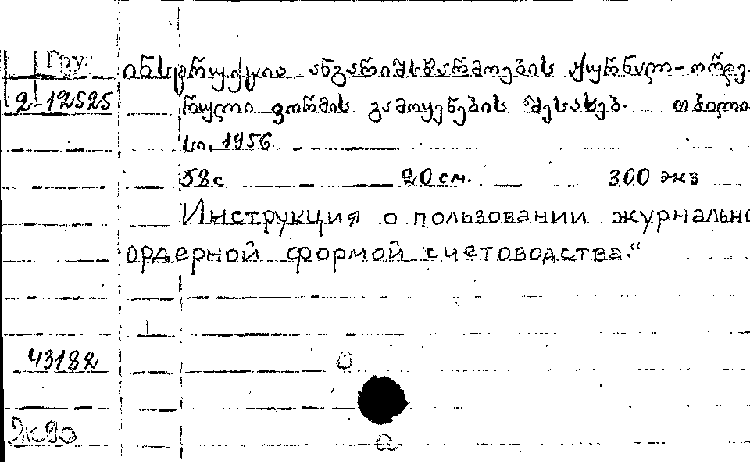 Гру.
ინსტრუქცია ანგარიშსწარმოების ჟურნალ-ორდე-
2-12525 რული ფორმის გამოყენების შესახებ. თბილი-
სი, 1956
58с 20 см. 300 экз
Инструкция о пользовании журнально
ордерной формой счетоводства."
43182